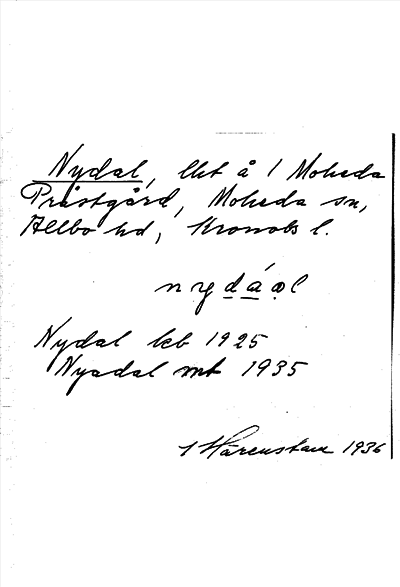 Nydal, lht å 1 Moheda
Prästgård, Moheda sn,
Allbo hd, Kronobs l.
nydáəl
Nydal kb 1925
Nyadal mt 1935
Härenstam 1936